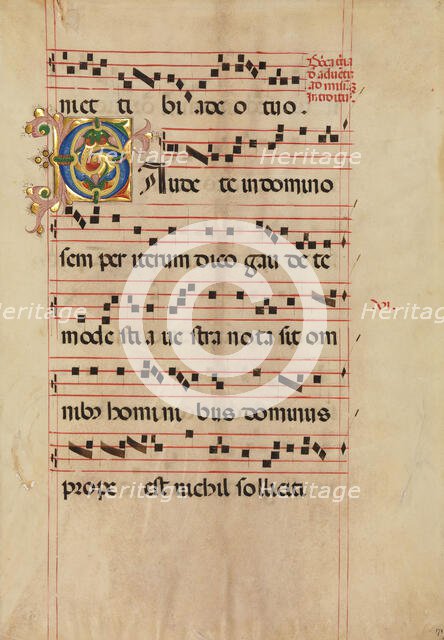 niet ti bi a deo tuo.
Dōca iii͞a
d aduētu
ad misā
Introitus
GAude te in domino
sem per iterum dico gau de te
modestia ue stra nota sit om
.xvi.
nibꝫ homini bus dominus
prope est nichil sollicita
Heritage
Heritage
Heritage
Heritage
Heritage
Heritage
Heritage
Heritage